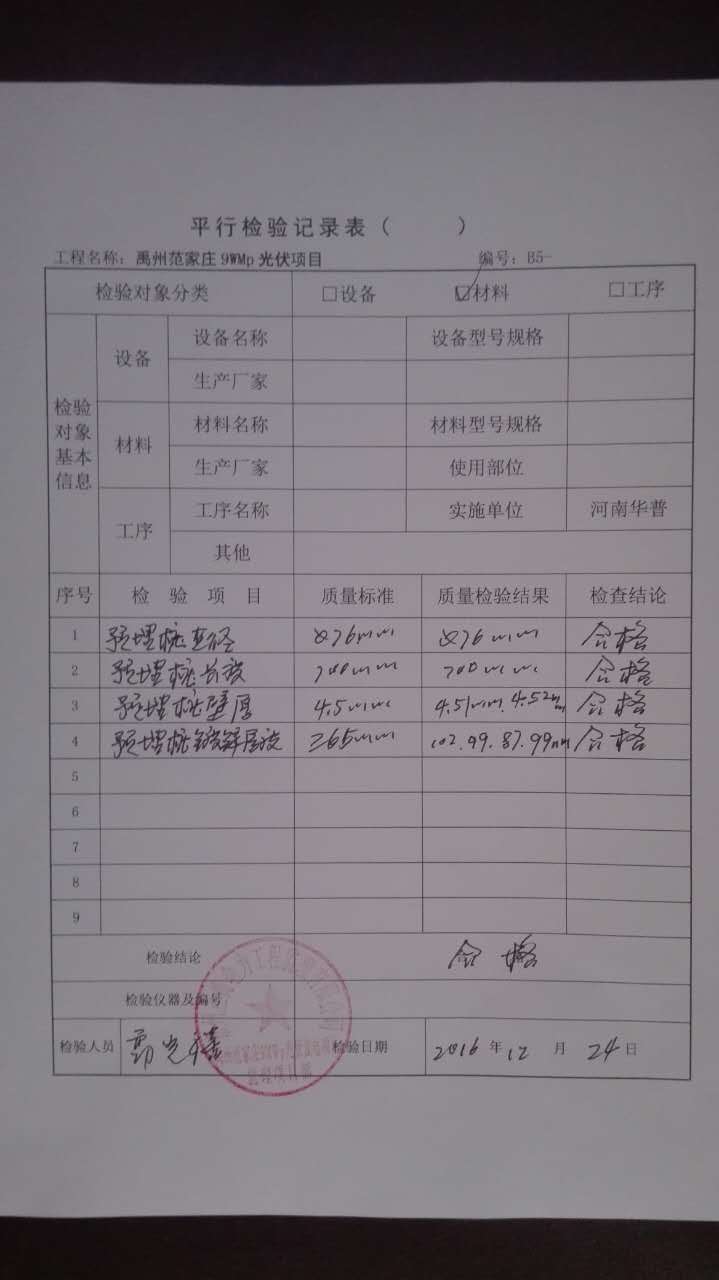 平行检验记录表（ ）
工程名称：禹州范家庄9WMp光伏项目 编号：B5-
检验对象分类 □设备 ☑材料 □工序
检验对象基本信息
设备 设备名称 设备型号规格
生产厂家
材料 材料名称 材料型号规格
生产厂家 使用部位
工序 工序名称 实施单位 河南华普
其他
序号 检验项目 质量标准 质量检验结果 检查结论
1 预埋桩直径 φ76mm φ76mm 合格
2 预埋桩长度 700mm 700mm 合格
3 预埋桩壁厚 4.5mm 4.51mm.4.52mm 合格
4 预埋桩镀锌层度 ≥65mm 102.99.87.99mm 合格
5
6
7
8
9
检验结论 合格
检验仪器及编号
检验人员 检验日期 2016年12月24日